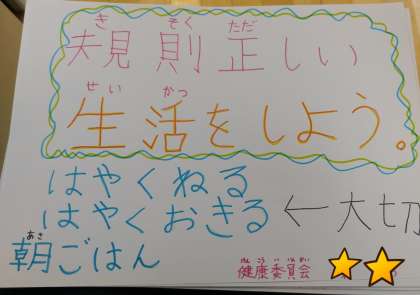 規則正しい
生活をしよう。
はやくねる
はやくおきる ←大切
朝ごはん
健康委員会